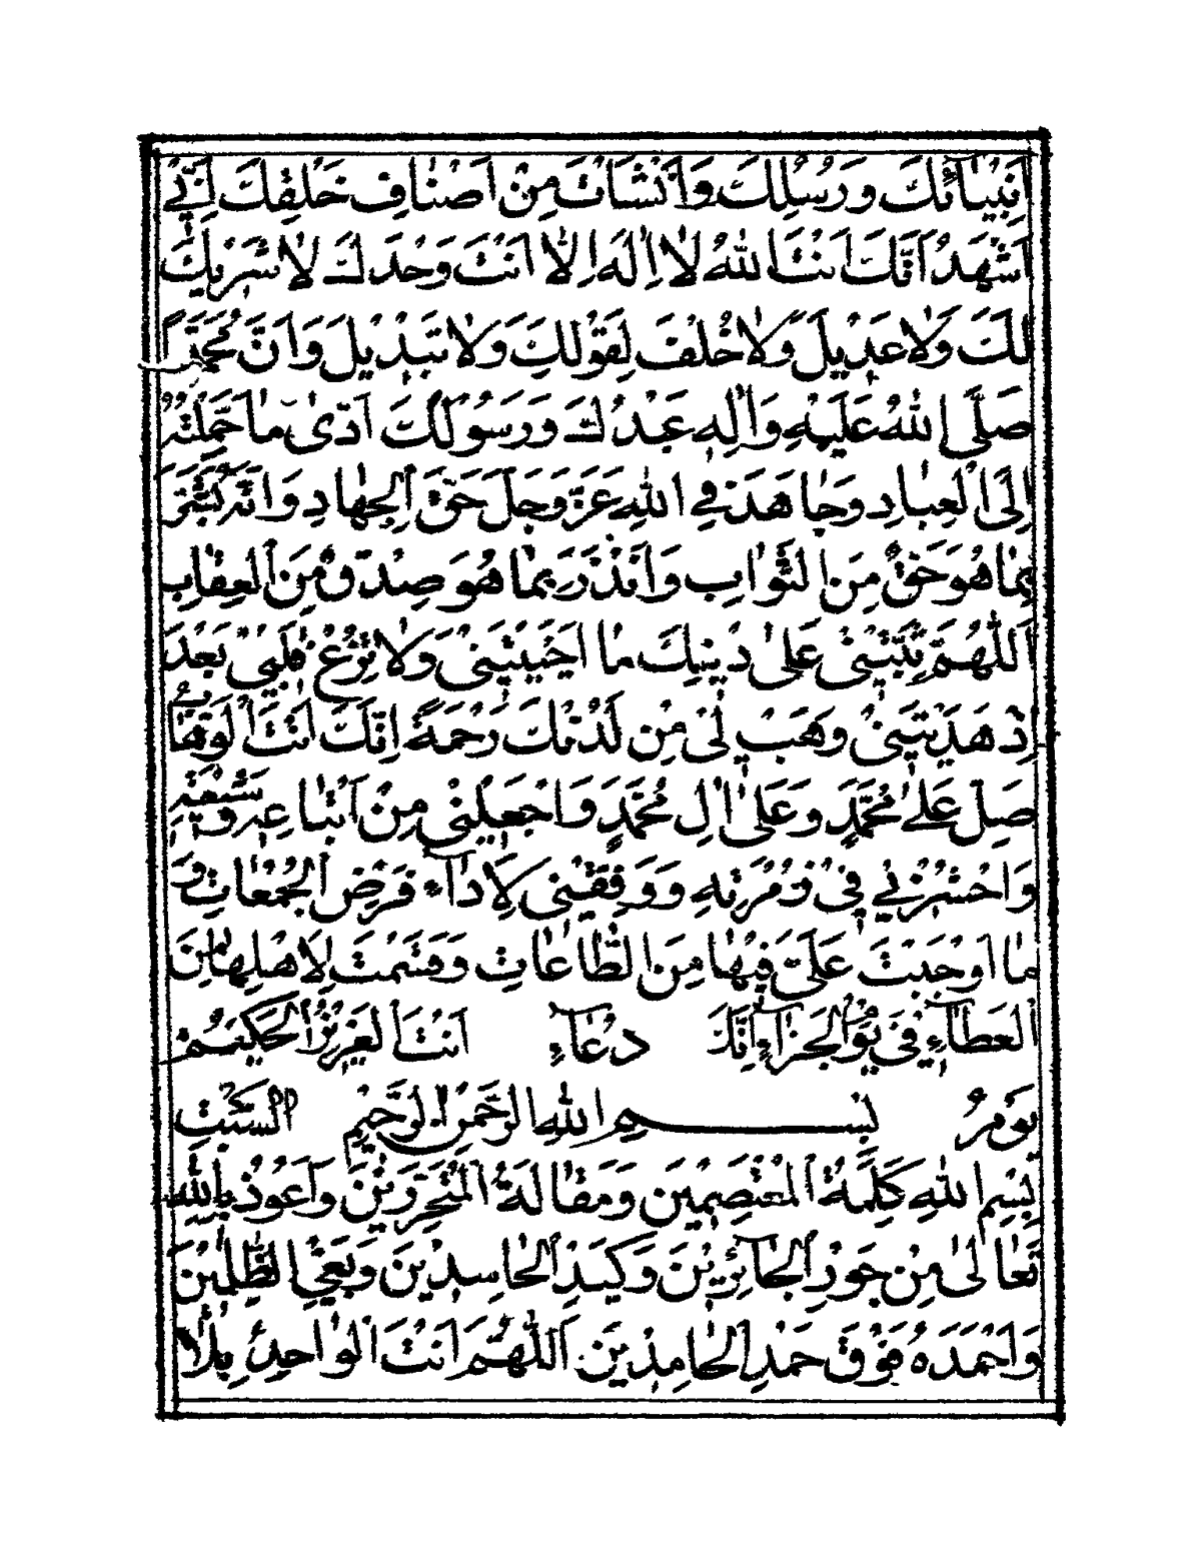 اَنْبِيَآئِكَ وَرُسُلِكَ وَاَنْشَاْتَ مِنْ اَصْنافِ خَلْقِكَ اَنّى
اَشْهَدُ اَنَّكَ اَنْتَ اللهُ لا اِلهَ اِلاّ اَنْتَ وَحْدَكَ لا شَريكَ
لَكَ وَلا عَديلَ وَلا خُلْفَ لِقَوْلِكَ وَلا تَبْديلَ وَاَنَّ مُحَمَّداً
صَلَّى اللهُ عَلَيْهِ وَآلِهِ عَبْدُكَ وَرَسُولُكَ اَدّى ما حَمَّلْتَهُ
اِلَى الْعِبادِ وَجاهَدَ فِي اللهِ عَزَّ وَجَلَّ حَقَّ الْجِهادِ وَاَنَّهُ بَشَّرَ
بِما هُوَ حَقٌّ مِنَ الثَّوابِ وَاَنْذَرَ بِما هُوَ صِدْقٌ مِنَ الْعِقابِ
اَللّهُمَّ ثَبِّتْنى عَلى دينِكَ ما اَحْيَيْتَنى وَلا تُزِغْ قَلْبى بَعْدَ
اِذْ هَدَيْتَنى وَهَبْ لى مِنْ لَدُنْكَ رَحْمَةً اِنَّكَ اَنْتَ الْوَهّابُ
صَلِّ عَلى مُحَمَّدٍ وَعَلى الِ مُحَمَّدٍ وَاجْعَلْنى مِنْ اَتْباعِهِ وَشيعَتِهِ
وَاحْشُرْنى فى زُمْرَتِهِ وَوَفِّقْنى لِاَدآءِ فَرْضِ الْجُمُعاتِ وَ
ما اَوْجَبْتَ عَلَىَّ فيها مِنَ الطّاعاتِ وَقَسَمْتَ لِاَهْلِها مِنَ
الْعَطآءِ فى يَوْمِ الْجَزآءِ اِنَّكَ اَنْتَ الْعَزيزُ الْحَكيمُ دُعآءِ
يَوْمِ السَّبْتِ بِسْمِ اللهِ الرَّحْمنِ الرَّحيمِ
بِسْمِ اللهِ كَلِمَةُ الْمُعْتَصِمينَ وَمَقالَةُ الْمُتَحَرِّزينَ وَاَعُوذُ بِاللهِ
تَعالى مِنْ جَوْرِ الْجآئِرينَ وَكَيْدِ الْحاسِدينَ وَبَغْىِ الظّالِمينَ
وَاَحْمَدُهُ فَوْقَ حَمْدِ الْحامِدينَ اَللّهُمَّ اَنْتَ الْواحِدُ بِلا